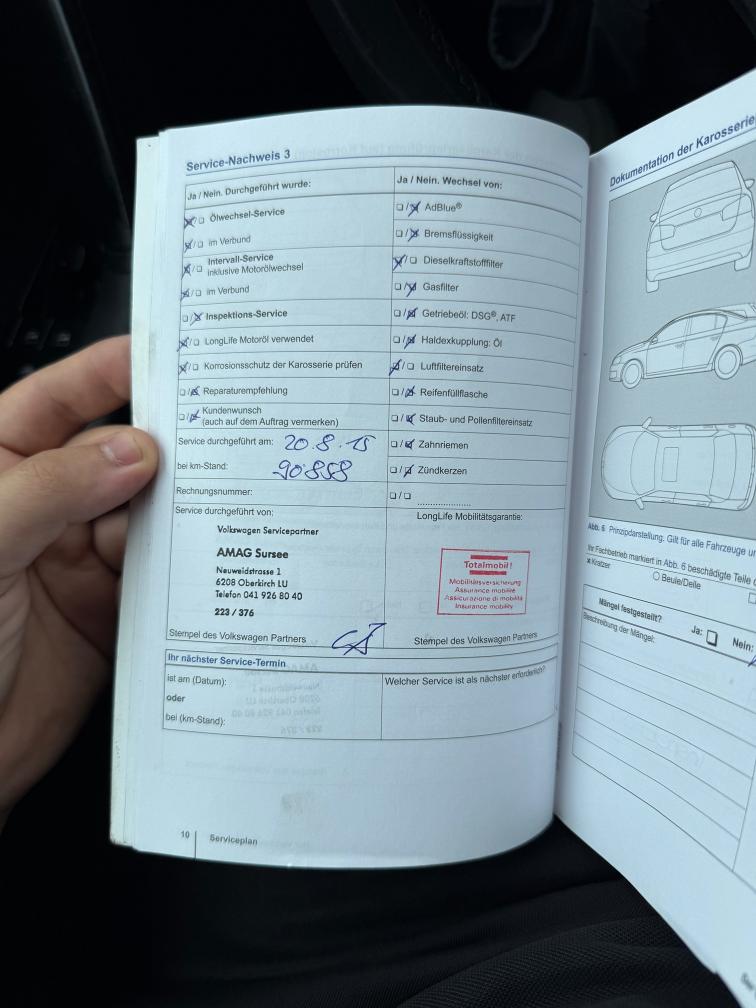 Service-Nachweis 3
Ja / Nein. Durchgeführt wurde:
☒/☐ Ölwechsel-Service
☒/☐ im Verbund
☒/☐ Intervall-Service
inklusive Motorölwechsel
☒/☐ im Verbund
☐/☒ Inspektions-Service
☒/☐ LongLife Motoröl verwendet
☒/☐ Korrosionsschutz der Karosserie prüfen
☐/☒ Reparaturempfehlung
☐/☒ Kundenwunsch
(auch auf dem Auftrag vermerken)
Service durchgeführt am: 20.8.15
bei km-Stand: 90'858
Rechnungsnummer:
Service durchgeführt von:
Volkswagen Servicepartner
AMAG Sursee
Neuweidstrasse 1
6208 Oberkirch LU
Telefon 041 926 80 40
223 / 376
Stempel des Volkswagen Partners
Ja / Nein. Wechsel von:
☐/☒ AdBlue®
☐/☒ Bremsflüssigkeit
☒/☐ Dieselkraftstofffilter
☐/☒ Gasfilter
☐/☒ Getriebeöl: DSG®, ATF
☐/☒ Haldexkupplung: Öl
☒/☐ Luftfiltereinsatz
☐/☒ Reifenfüllflasche
☐/☒ Staub- und Pollenfiltereinsatz
☐/☒ Zahnriemen
☐/☒ Zündkerzen
☐/☐ ....................
LongLife Mobilitätsgarantie:
Totalmobil!
Mobilitätsversicherung
Assurance mobilité
Assicurazione di mobilità
Insurance mobility
Stempel des Volkswagen Partners
Ihr nächster Service-Termin
ist am (Datum):
oder
bei (km-Stand):
Welcher Service ist als nächster erforderlich?
10 Serviceplan
Dokumentation der Karosserie
Abb. 6 Prinzipdarstellung: Gilt für alle Fahrzeuge
Ihr Fachbetrieb markiert in Abb. 6 beschädigte Teile
x Kratzer
○ Beule/Delle
Mängel festgestellt?
Ja: ☐ Nein:
Beschreibung der Mängel: